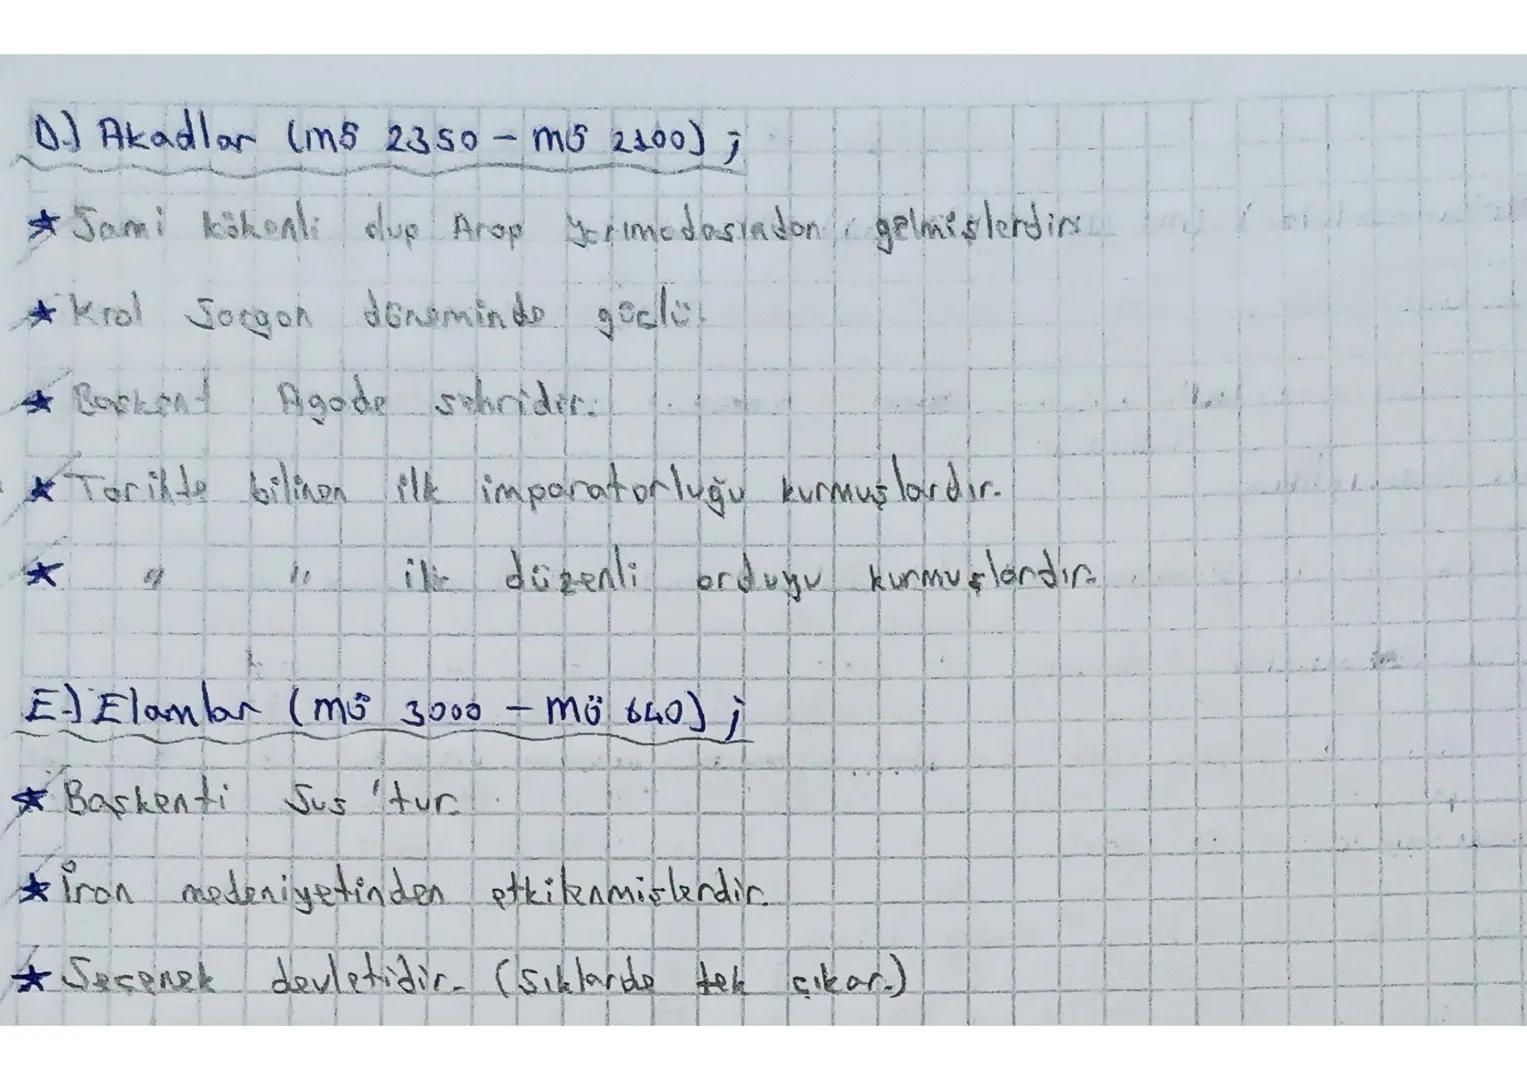 D.) Akadlar (mö 2350 - mö 2100) ;
★ Sami kökenli olup Arap Yarımadasından gelmişlerdir.
★ Kral Sargon döneminde güçlü.
★ Başkent Agade şehridir.
★ Tarihte bilinen ilk imparatorluğu kurmuşlardır.
★ " " ilk düzenli orduyu kurmuşlardır.
E-) Elamlar (mö 3000 - mö 640) ;
★ Başkenti Sus 'tur.
★ İran medeniyetinden etkilenmişlerdir.
★ Seçenek devletidir. (Şıklarda tek çıkar.)